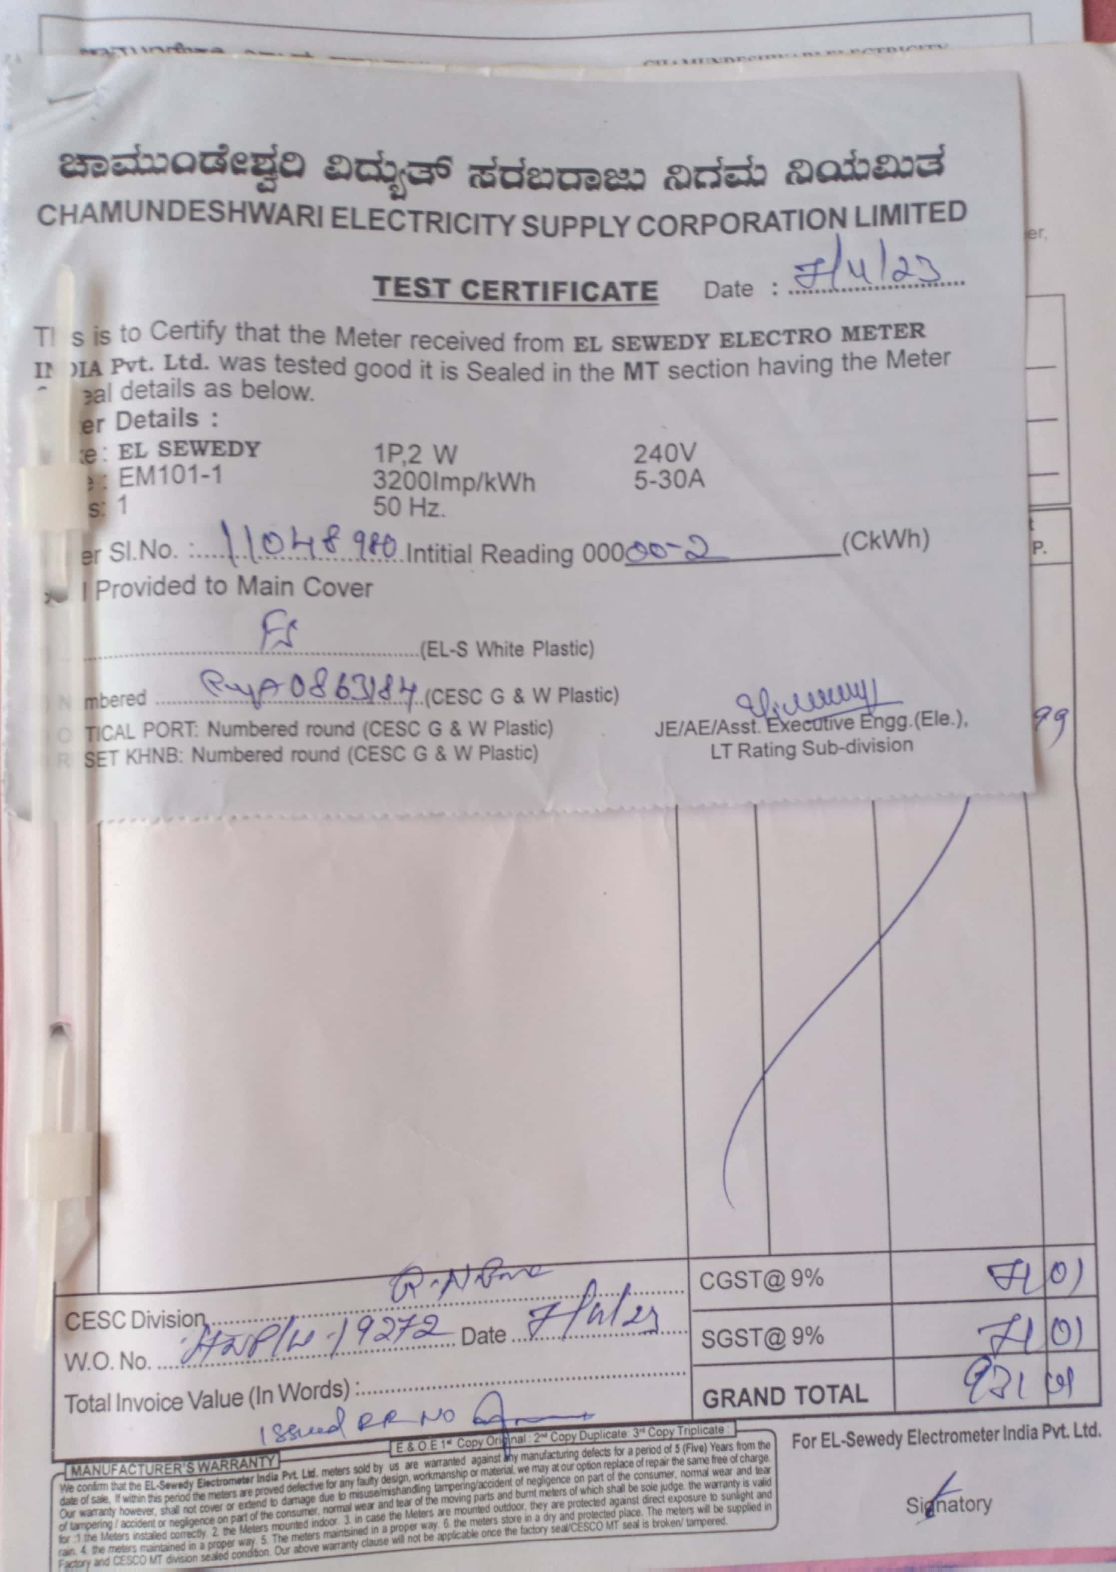 ಚಾಮುಂಡೇಶ್ವರಿ ವಿದ್ಯುತ್ ಸರಬರಾಜು ನಿಗಮ ನಿಯಮಿತ
CHAMUNDESHWARI ELECTRICITY SUPPLY CORPORATION LIMITED
TEST CERTIFICATE Date : 7/4/23
s is to Certify that the Meter received from EL SEWEDY ELECTRO METER
DIA Pvt. Ltd. was tested good it is Sealed in the MT section having the Meter
eal details as below.
er Details :
e: EL SEWEDY 1P,2 W 240V
: EM101-1 3200Imp/kWh 5-30A
s: 1 50 Hz.
er Sl.No. : 11048980 Intitial Reading 00000-2 (CkWh)
Provided to Main Cover
(EL-S White Plastic)
mbered 0863184 (CESC G & W Plastic)
TICAL PORT: Numbered round (CESC G & W Plastic) JE/AE/Asst. Executive Engg.(Ele.),
SET KHNB: Numbered round (CESC G & W Plastic) LT Rating Sub-division
er,
P.
99
CGST@ 9% 71 01
CESC Division
SGST@ 9% 71 01
W.O. No. 19272 Date 7/4/23
Total Invoice Value (In Words) : GRAND TOTAL 931 01
Issued RR NO
E & O.E 1st Copy Original : 2nd Copy Duplicate: 3rd Copy Triplicate
For EL-Sewedy Electrometer India Pvt. Ltd.
MANUFACTURER'S WARRANTY
We confirm that the EL-Sewedy Electrometer India Pvt. Ltd. meters sold by us are warranted against any manufacturing defects for a period of 5 (Five) Years from the
date of sale. If within this period the meters are proved defective for any faulty design, workmanship or material, we may at our option replace of repair the same free of charge.
Our warranty however, shall not cover or extend to damage due to misuse/mishandling tampering/accident of negligence on part of the consumer, normal wear and tear
of tampering / accident or negligence on part of the consumer, normal wear and tear of the moving parts and burnt meters of which shall be sole judge. the warranty is valid
for :1 the Meters installed correctly. 2. the Meters mounted indoor. 3. in case the Meters are mounted outdoor, they are protected against direct exposure to sunlight and
rain. 4. the meters maintained in a proper way. 5. The meters maintsined in a proper way. 6. the meters store in a dry and protected place. The meters will be supplied in
Factory and CESCO MT division sealed condition. Our above warranty clause will not be applicable once the factory seal/CESCO MT seal is broken/ tampered.
Signatory